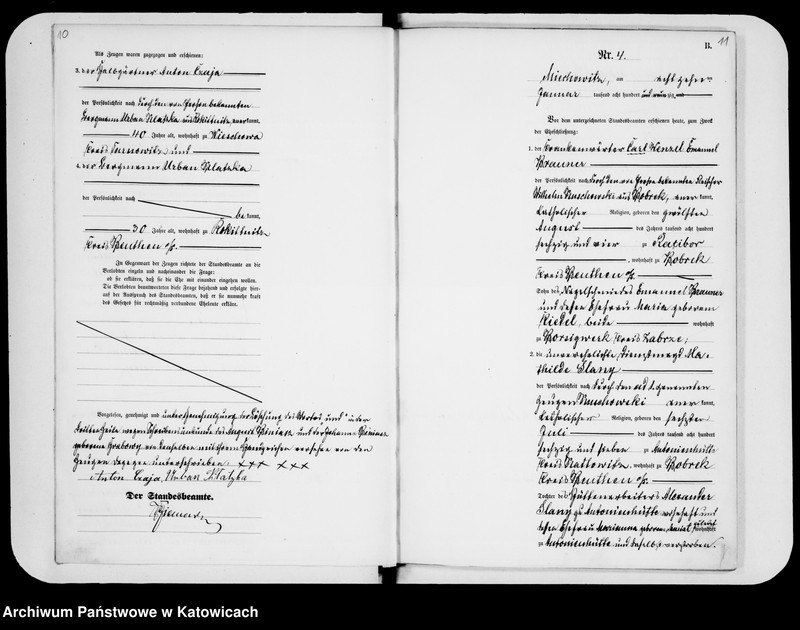 10
Als Zeugen waren zugezogen und erschienen:
3. der Halbgärtner Anton Czaja
der Persönlichkeit nach durch den von Person bekannten
Bergmann Urban Klatzka aus Rokittnitz anerkannt,
40 Jahre alt, wohnhaft zu Wieschowa
Kreis Tarnowitz und
4. der Bergmann Urban Klatzka
der Persönlichkeit nach
bekannt,
30 Jahre alt, wohnhaft zu Rokittnitz
Kreis Beuthen o/s.
In Gegenwart der Zeugen richtete der Standesbeamte an die
Verlobten einzeln und nacheinander die Frage:
ob sie erklären, daß sie die Ehe mit einander eingehen wollen.
Die Verlobten beantworteten diese Frage bejahend und erfolgte hier-
auf der Ausspruch des Standesbeamten, daß er sie nunmehr kraft
des Gesetzes für rechtmäßig verbundene Eheleute erkläre.
Vorgelesen, genehmigt und unter Genehmigung der Löschung des Wortes "und" in der
dritten Zeile wegen Schreibensunkunde des August und der Johanna
geborene Grabowy von denselben mit ihrem Handzeichen versehen von den
Zeugen dagegen unterschrieben. xxx xxx
Anton Czaja, Urban Klatzka
Der Standesbeamte.
11
B.
Nr. 4.
Miechowitz, am acht zehn ten
Januar tausend acht hundert und neunzig
Vor dem unterzeichneten Standesbeamten erschienen heute, zum Zweck
der Eheschließung:
1. der Krankenwärter Carl Wenzel Emanuel
Brauner
der Persönlichkeit nach durch den von Person bekannten
Wilhelm Muschowski aus Bobrek, anerkannt,
katholischer Religion, geboren den zwölften
August des Jahres tausend acht hundert
sechzig und vier zu Ratibor
, wohnhaft zu Bobrek
Kreis Beuthen o/s.
Sohn des Nagelschmiedes Emanuel Brauner
und dessen Ehefrau Maria geborenen
Riedel, beide wohnhaft
zu Borsigwerk Kreis Zabrze;
2. die unverehelichte Dienstmagd Ma-
thilde Slany
der Persönlichkeit nach durch den ad 1 genannten
Zeugen Muschowski anerkannt,
katholischer Religion, geboren den sechsten
Juli des Jahres tausend acht hundert
sechzig und sieben zu Antonienhütte
Kreis Kattowitz, wohnhaft zu Bobrek
Kreis Beuthen o/s.
Tochter des Hüttenarbeiters Alexander
Slany zu Antonienhütte wohnhaft und
dessen Ehefrau Marianna geborenen wohnhaft
zu Antonienhütte und daselbst verstorben.
Archiwum Państwowe w Katowicach